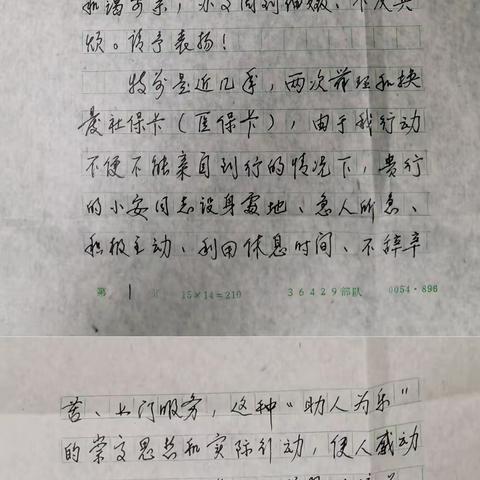 和蔼可亲，办文周到细致、不厌其
烦。请予表扬！
特别是近几年，两次办理和换
发社保卡（医保卡），由于我行动
不便不能亲自到行的情况下，贵行
的小安同志设身处地、急人所急、
积极主动、利用休息时间、不辞辛
第 1 页 15×14=210 36429部队 0054·896
苦、上门服务，这种“助人为乐”
的崇高思想和实际行动，使人感动